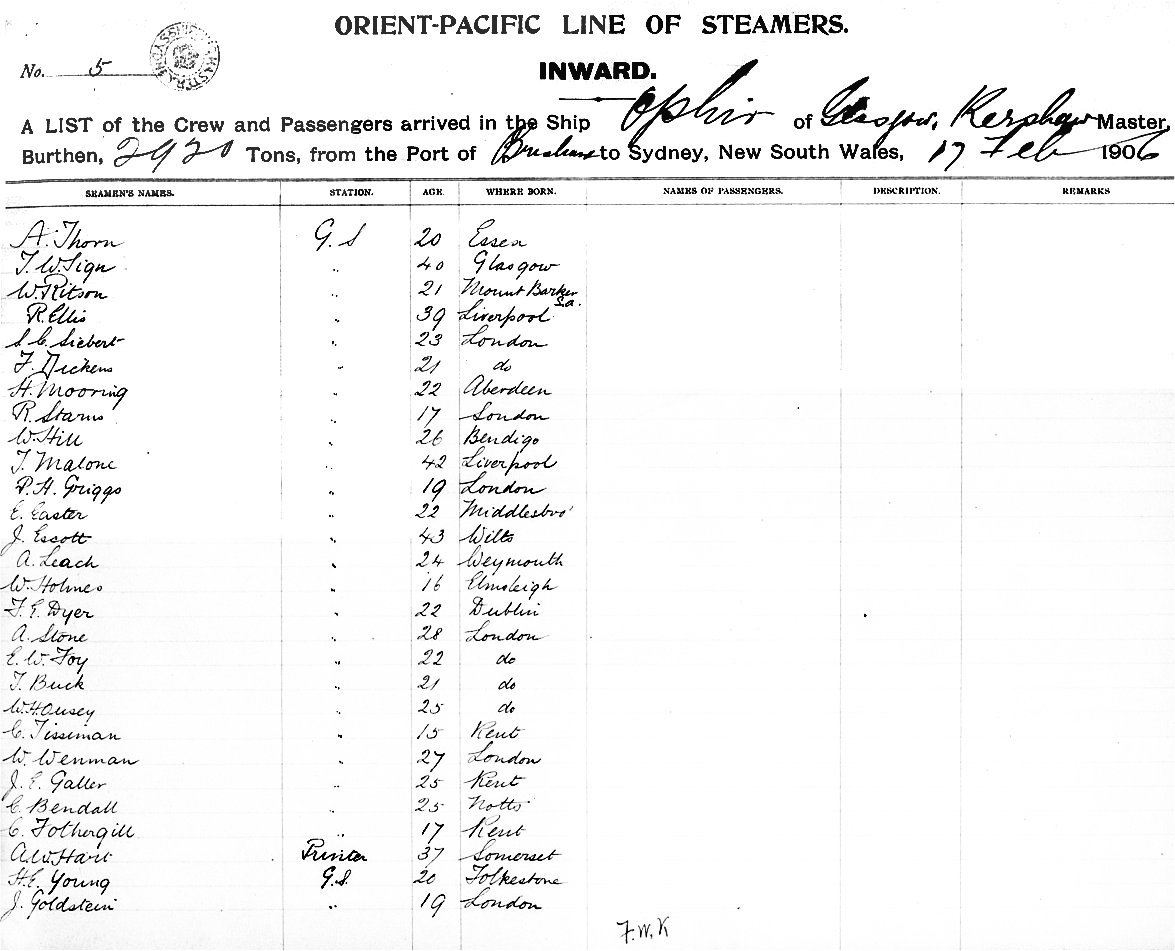 ORIENT-PACIFIC LINE OF STEAMERS.
No. 5
INWARD.
A LIST of the Crew and Passengers arrived in the Ship Ophir of Glasgow, Kershaw Master,
Burthen, 2920 Tons, from the Port of Brisbane to Sydney, New South Wales, 17 Feb 1906
SEAMEN'S NAMES. STATION. AGE. WHERE BORN. NAMES OF PASSENGERS. DESCRIPTION. REMARKS
A. Thorn G.S 20 Essex
T. W. Sign " 40 Glasgow
W. Ritson " 21 Mount Barker S.a.
R. Ellis " 39 Liverpool
S. C. Siebert " 23 London
F. Dickens " 21 do
H. Mooring " 22 Aberdeen
R. Starns " 17 London
W. Hill " 26 Bendigo
T. Malone " 42 Liverpool
P. H. Griggs " 19 London
E. Easter " 22 Middlesbro'
J. Escott " 43 Wilts
A. Leach " 24 Weymouth
W. Holmes " 16 Elmsleigh
F. E. Dyer " 22 Dublin
A. Stone " 28 London
E. W. Foy " 22 do
T. Buck " 21 do
W. Hausey " 25 do
C. Tissiman " 15 Kent
W. Wenman " 27 London
J. E. Galler " 25 Kent
C. Bendall " 25 Notts
C. Fothergill " 17 Kent
A. W. Hart Printer 37 Somerset
H. E. Young G.S. 20 Folkestone
J. Goldstein " 19 London
F. W. K